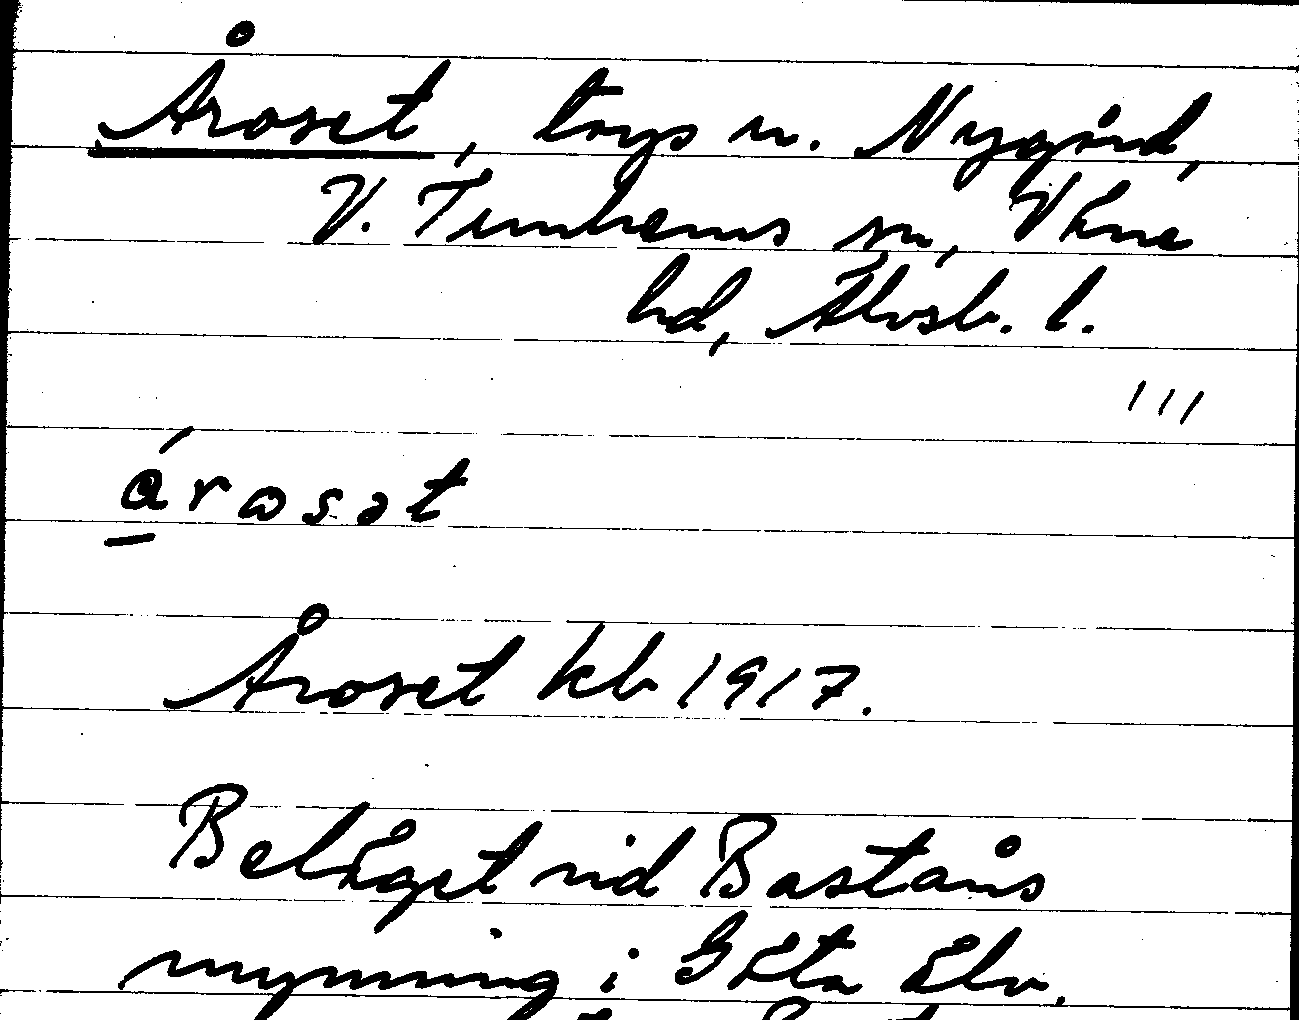 Åroset, torp u. Nygård,
V. Tunhems sn, Väne
hd, Älvsb. l.
111
árωsət
Åroset kb 1917.
Beläget vid Baståns
mynning i Göta älv.